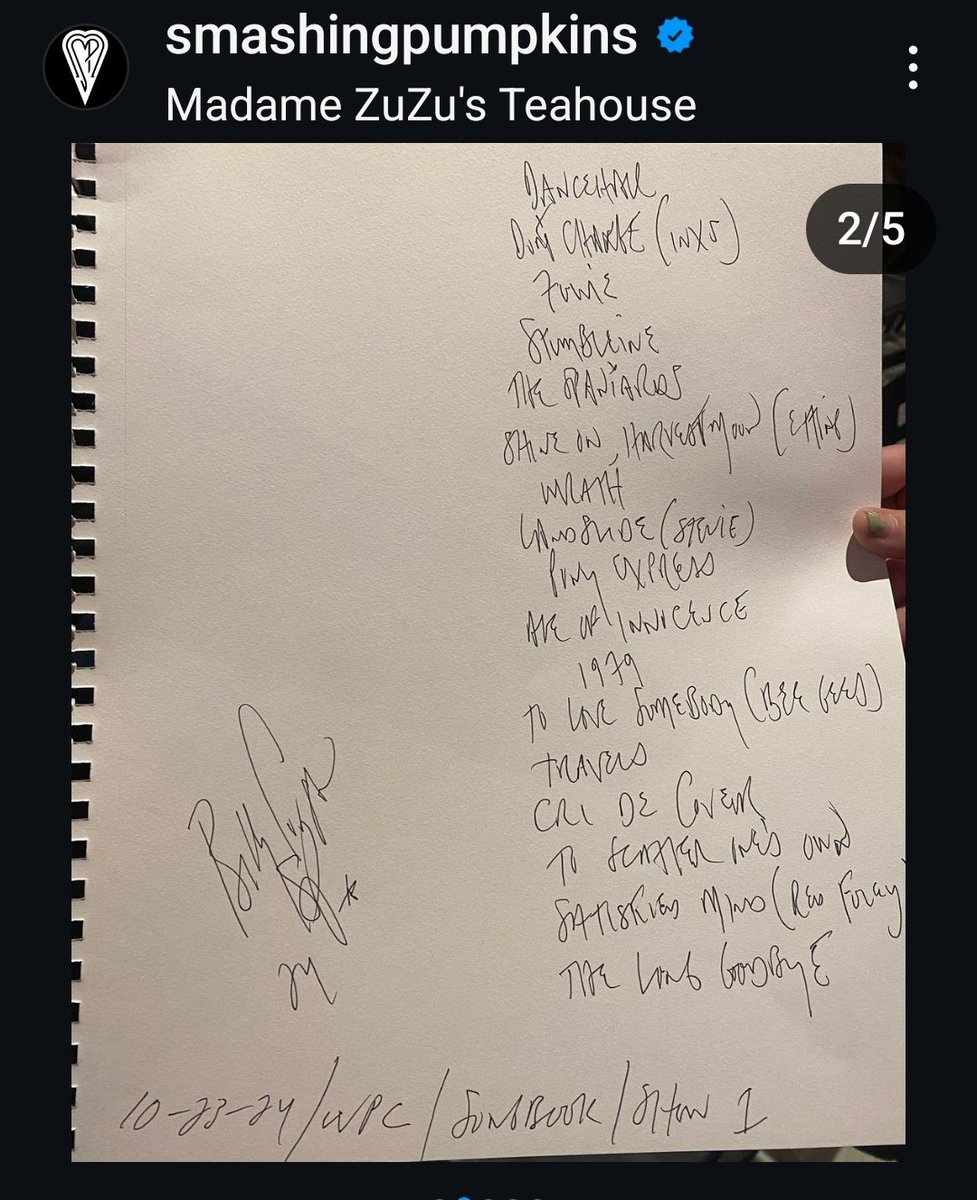 smashingpumpkins
Madame ZuZu's Teahouse
2/5
DANCEHALL
DON'T CHANGE (INXS)
STUMBLEINE
THE SPANIARDS
SHINE ON, HARVEST MOON (ETTING)
WRATH
LANDSLIDE (STEVIE)
PONY EXPRESS
AGE OF INNOCENCE
1979
TO LOVE SOMEBODY (BEE GEES)
TRAVELS
CRI DE COEUR
TO SCATTER ONE'S OWN
SATISFIED MIND (RED FOLEY)
THE LONG GOODBYE
Billy Corgan
10-23-24/WPC/SONGBOOK/SHOW 1